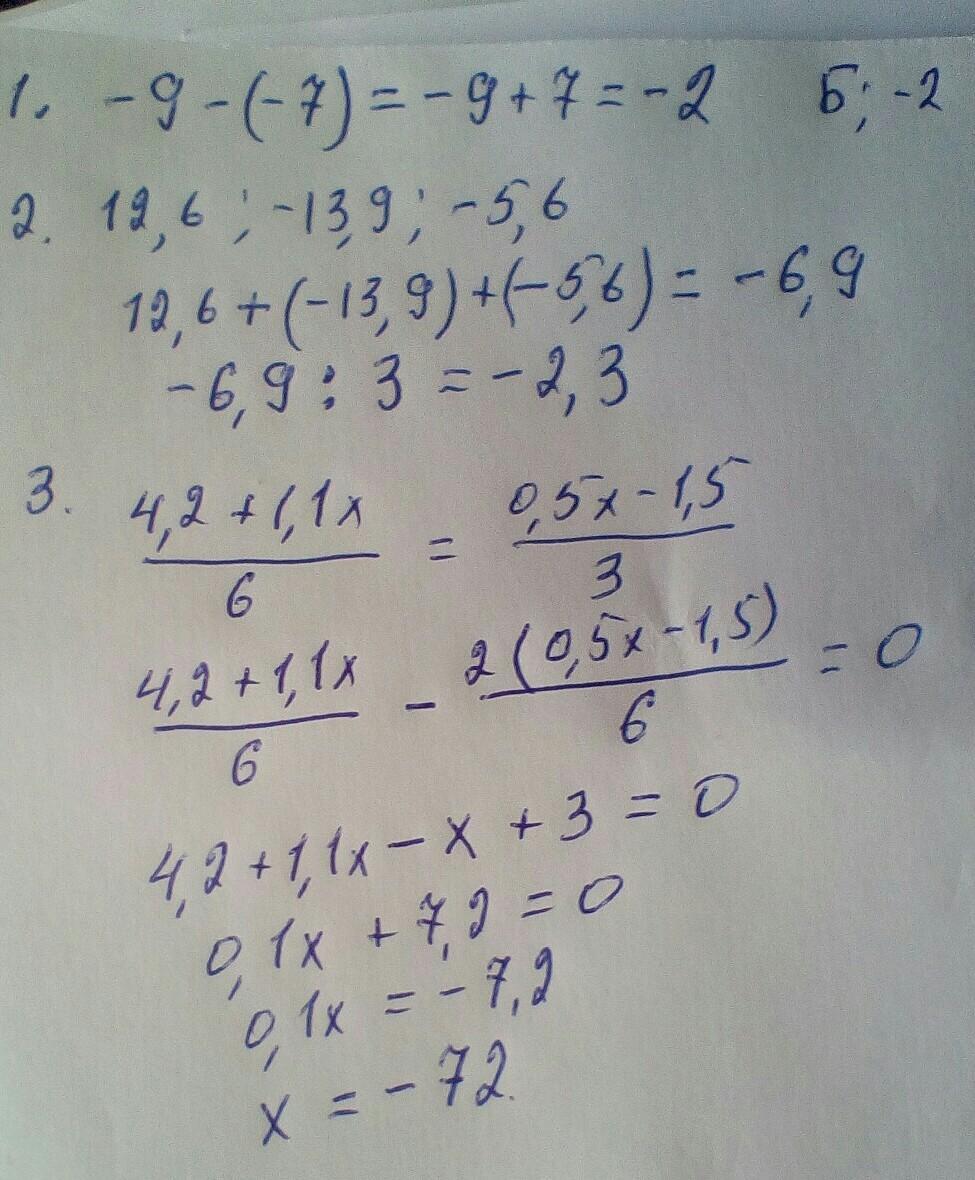 1. -9-(-7)=-9+7=-2 Б; -2
2. 12,6; -13,9; -5,6
12,6+(-13,9)+(-5,6)=-6,9
-6,9:3=-2,3
3. (4,2+1,1x)/6 = (0,5x-1,5)/3
(4,2+1,1x)/6 - 2(0,5x-1,5)/6 = 0
4,2+1,1x-x+3=0
0,1x+7,2=0
0,1x=-7,2
x=-72.